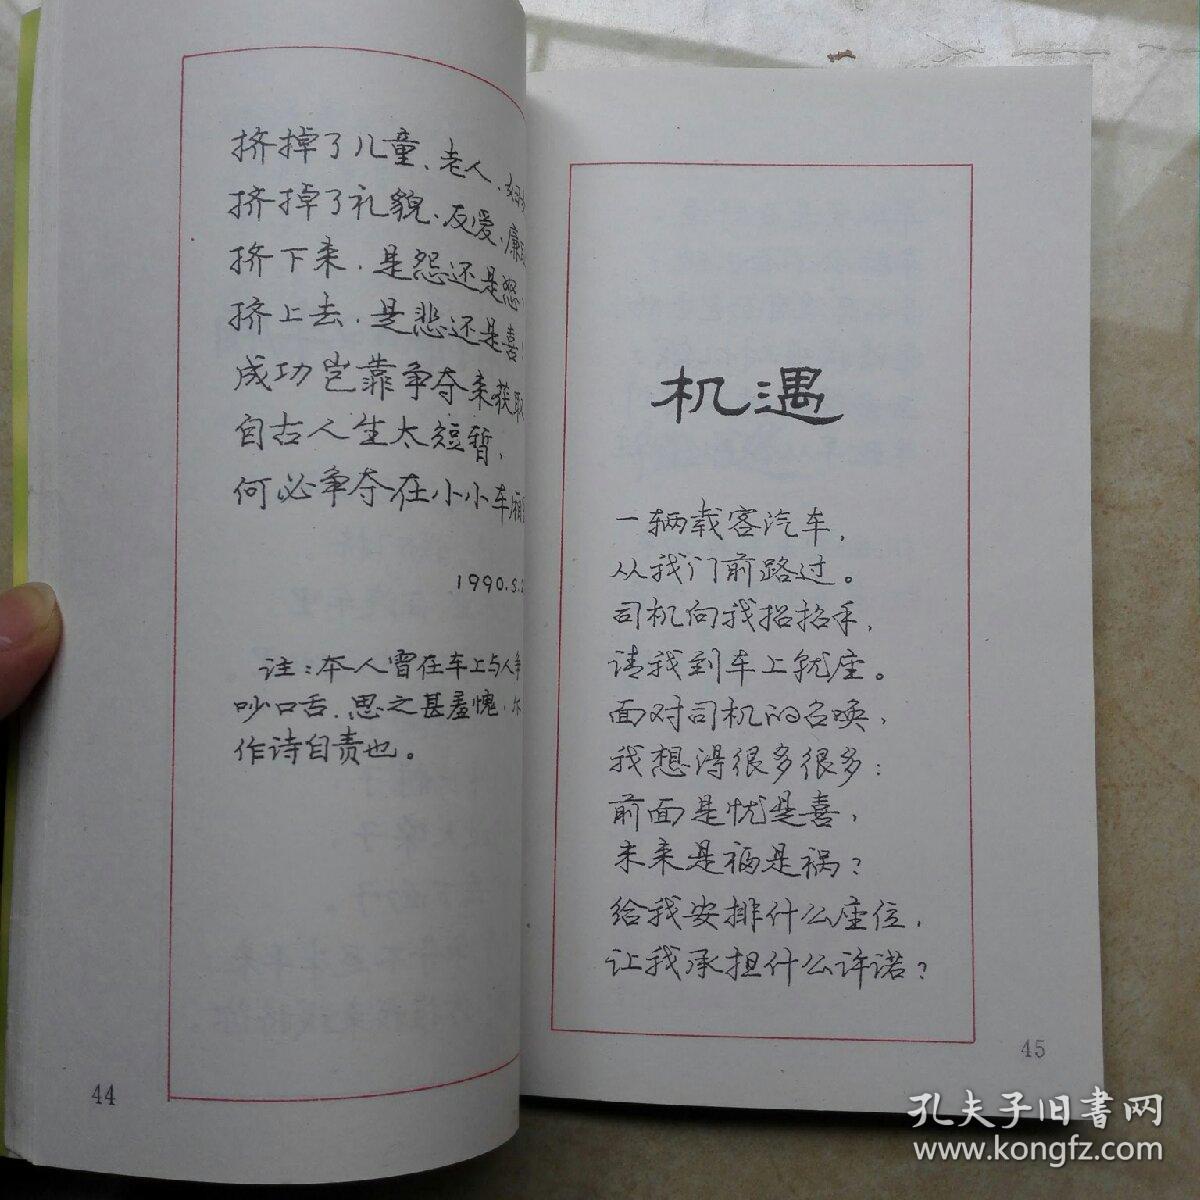 挤掉了儿童、老人、妇
挤掉了礼貌、反爱、廉
挤下来，是怨还是怒
挤上去，是悲还是喜
成功岂靠争夺来获取
自古人生太短暂，
何必争夺在小小车厢
1990.5.2
注：本人曾在车上与人争
吵口舌，思之甚羞愧，
作诗自责也。
44
机遇
一辆载客汽车，
从我门前路过。
司机向我招招手，
请我到车上就座。
面对司机的召唤，
我想得很多很多：
前面是忧是喜，
未来是福是祸？
给我安排什么座位，
让我承担什么许诺？
45
孔夫子旧书网
www.kongfz.com